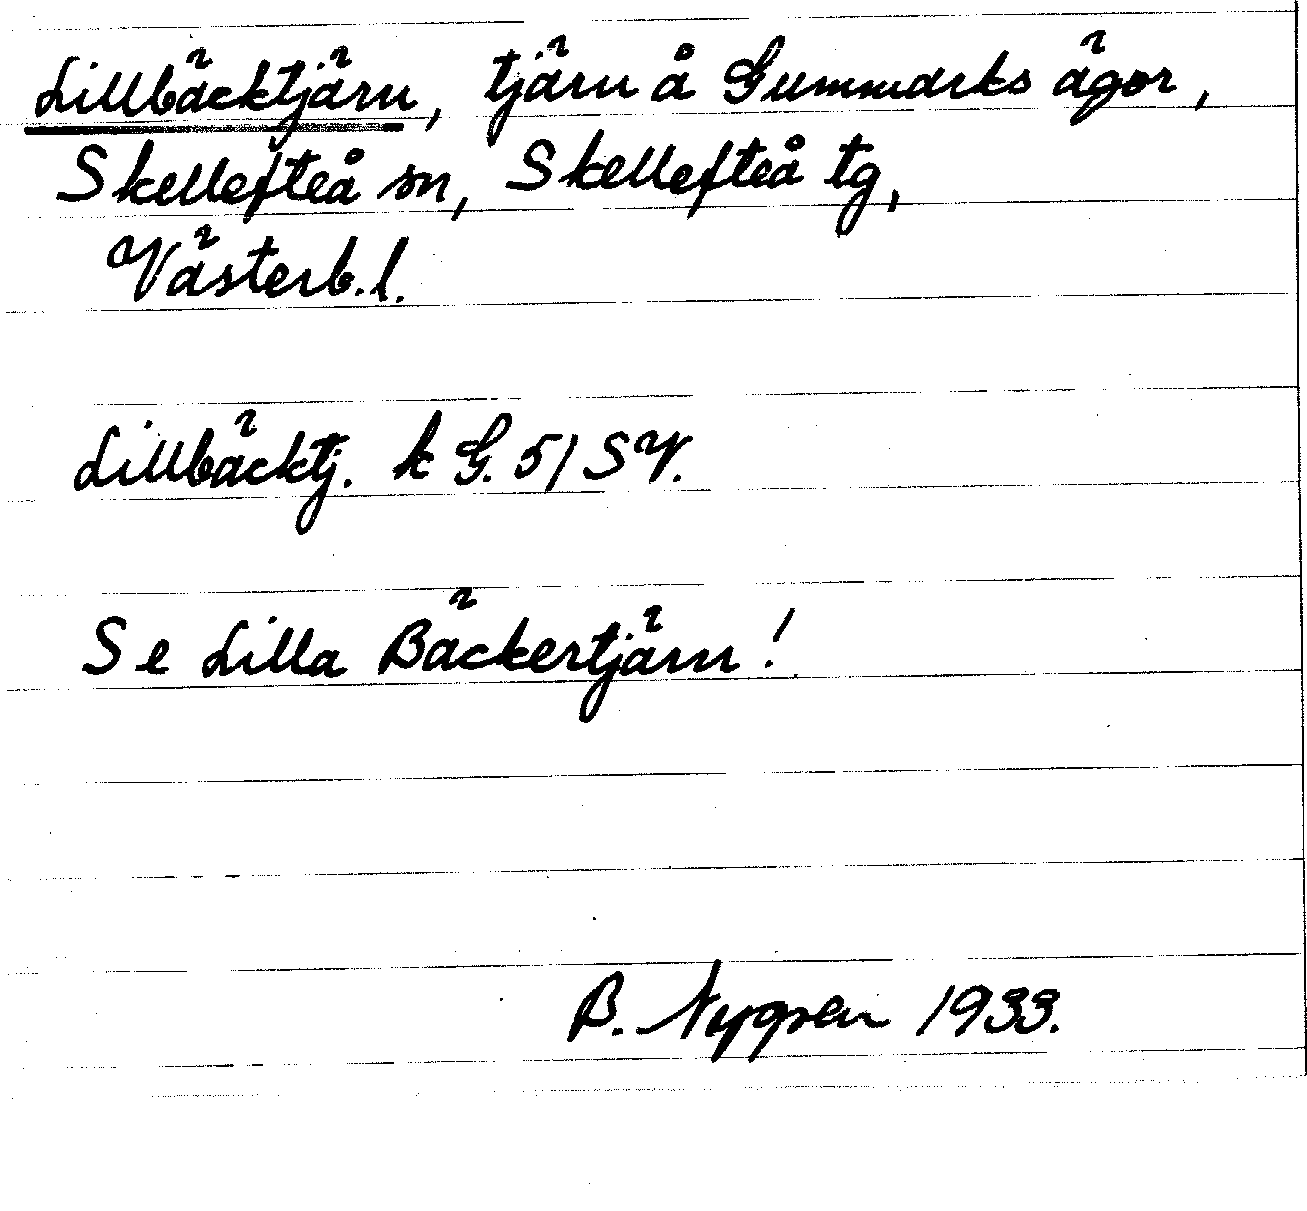 Lillbäcktjärn, tjärn å Gummarks ägor,
Skellefteå sn, Skellefteå tg,
Västerb.l.
Lillbäcktj. k G. 51 SV.
Se Lilla Bäckertjärn!
B. Nygren 1933.